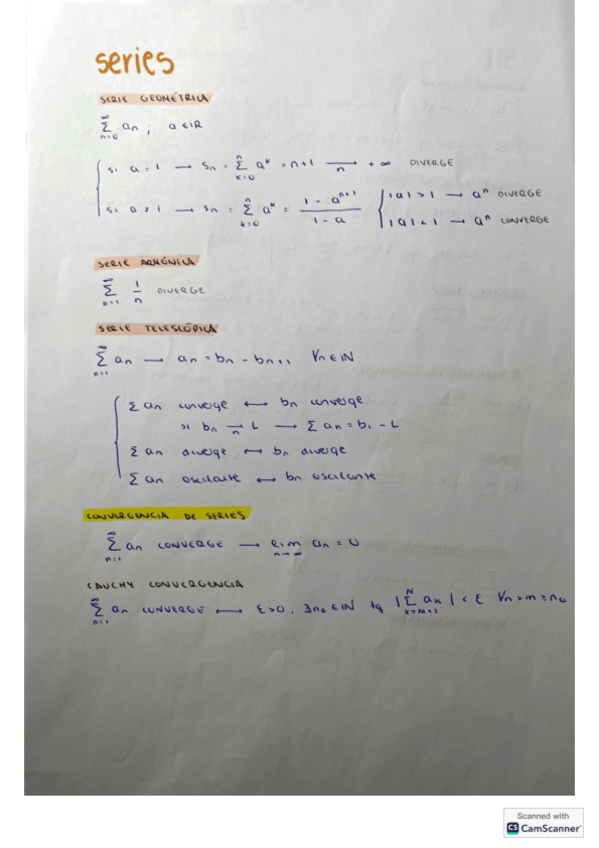 series
SERIE GEOMÉTRICA
∞ Σ n=0 an ; a ∈ IR
si a = 1 → Sn = n Σ k=0 a^k = n+1 →n +∞ DIVERGE
si a ≠ 1 → Sn = n Σ k=0 a^k = (1 - a^(n+1)) / (1 - a) { |a| > 1 → a^n DIVERGE
|a| < 1 → a^n CONVERGE
SERIE ARMÓNICA
∞ Σ n=1 1/n DIVERGE
SERIE TELESCÓPICA
∞ Σ n=1 an → an = bn - bn+1 ∀n ∈ IN
Σ an converge ↔ bn converge
si bn →n L → Σ an = b1 - L
Σ an diverge ↔ bn diverge
Σ an oscilante ↔ bn oscilante
CONVERGENCIA DE SERIES
∞ Σ n=1 an CONVERGE → lim n→∞ an = 0
CAUCHY CONVERGENCIA
∞ Σ n=1 an CONVERGE ↔ ε>0, ∃n0 ∈ IN tq |N Σ k=m+1 ak| < ε ∀n>m≥n0
Scanned with
CS CamScanner